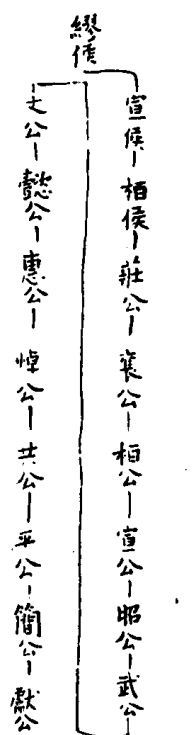 繆侯
宣侯—柏侯—莊公—襄公—柏公—宣公—昭公—武公
文公—懿公—惠公—悼公—共公—平公—簡公—獻公